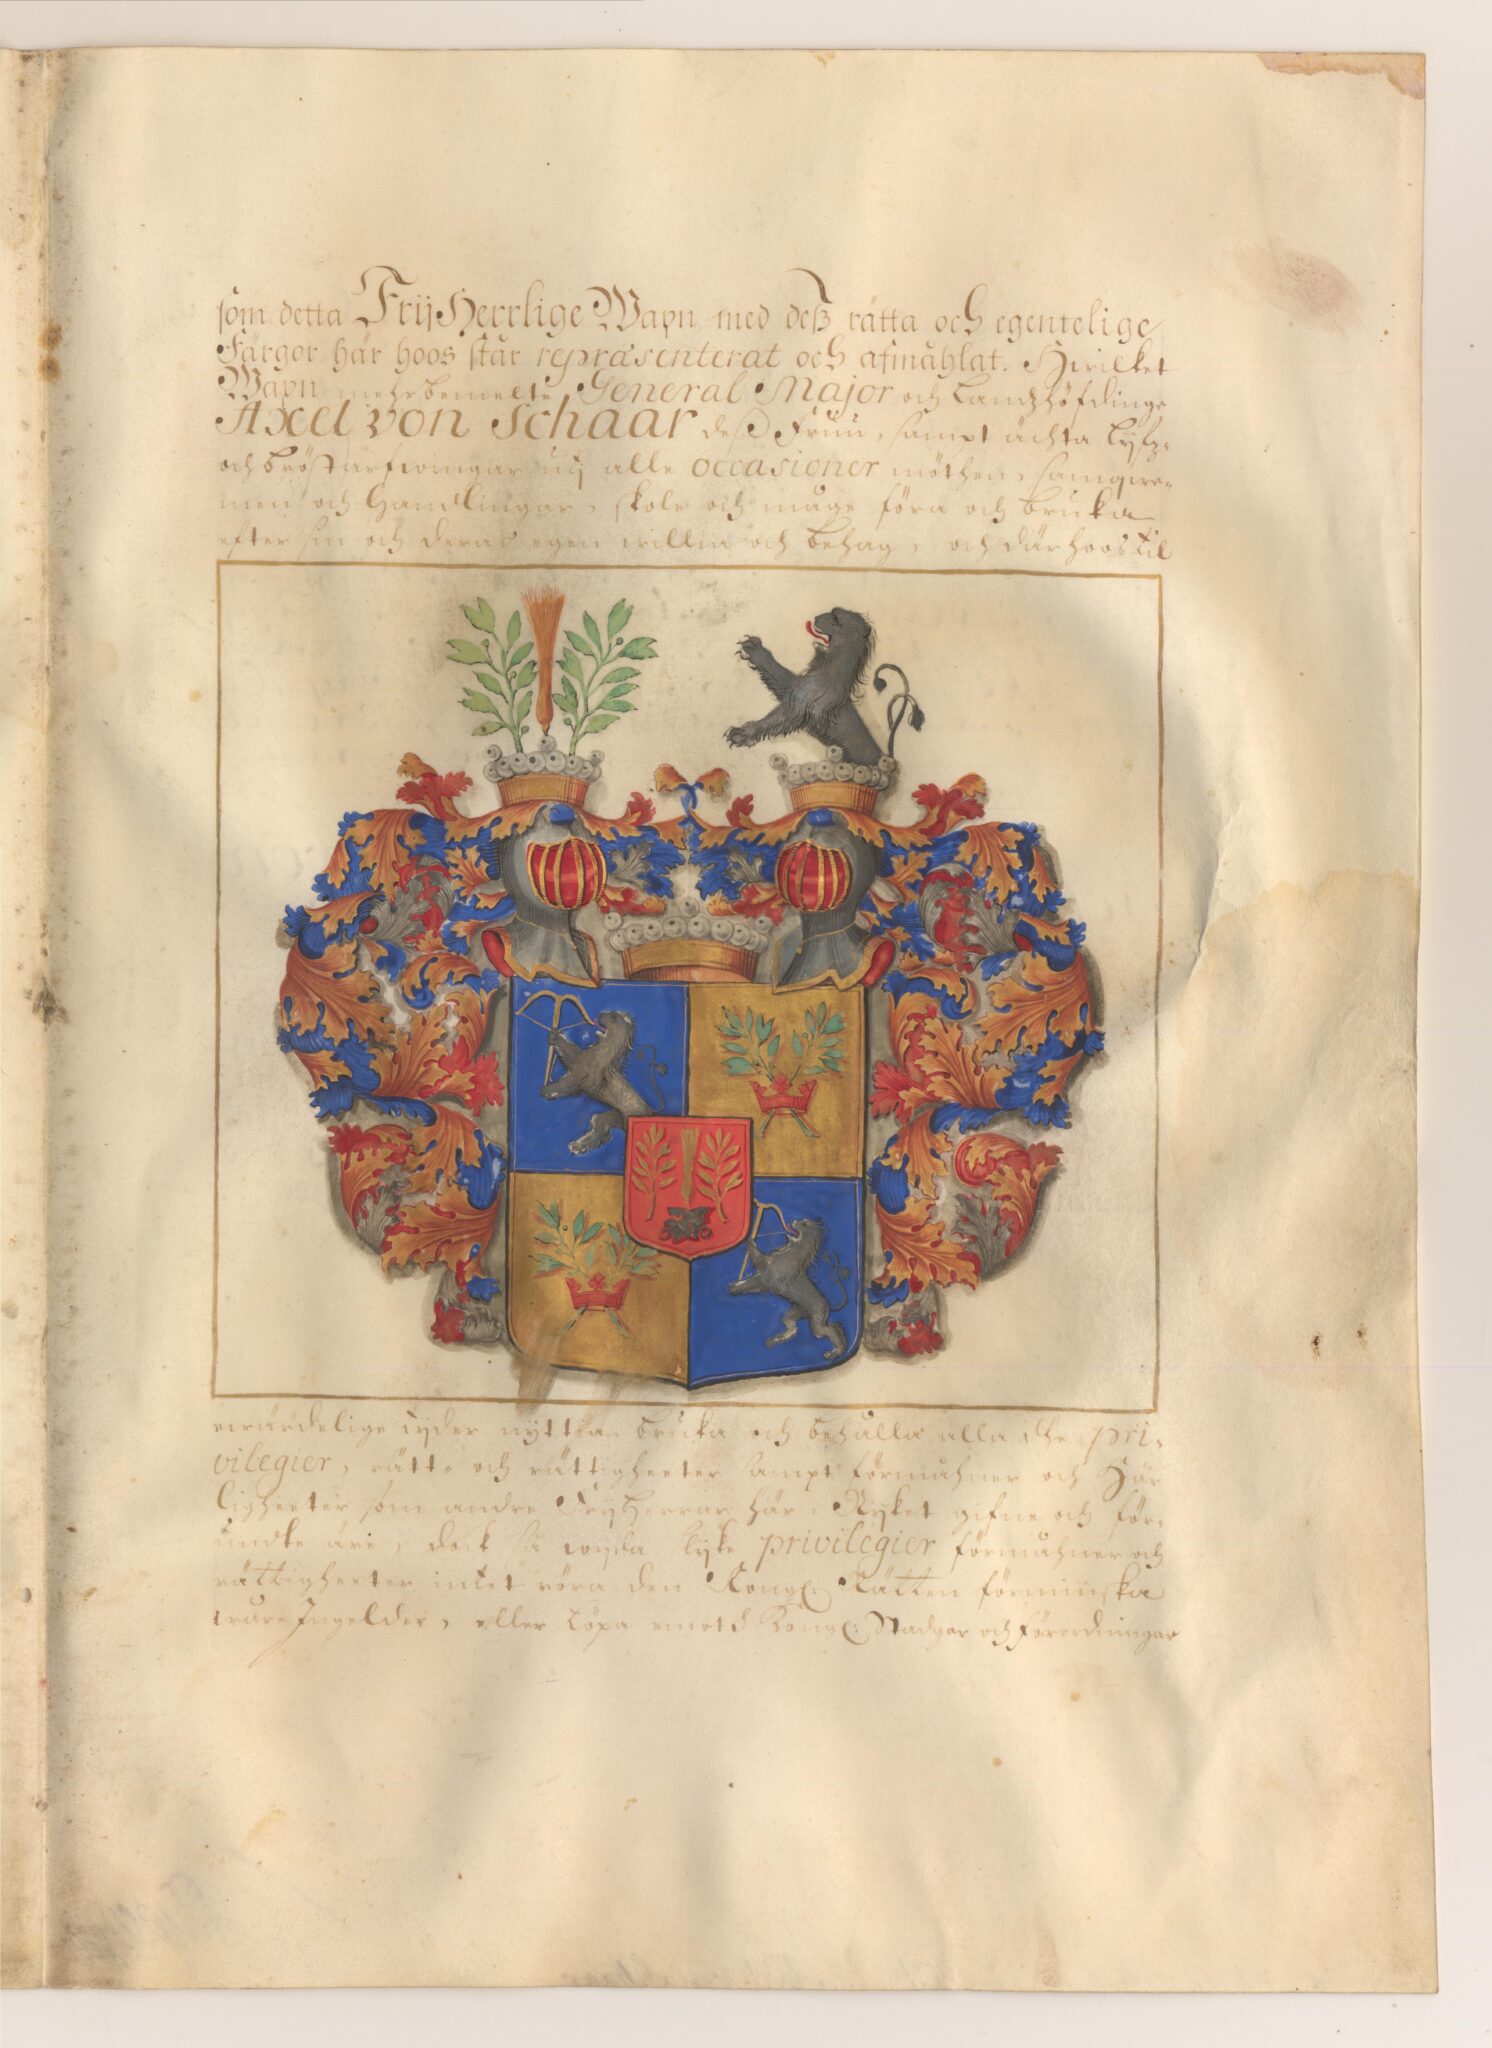 som detta FrijHerrlige Wapn med deß rätta och egentelige
Färgor här hoos står repræsenterat och afmåhlat. Hwilket
Wapn mehrbemelte General Major och Landzhöfdinge
Axel von Schaar deß Fruu, sampt ächta Lijfz-
och bröstarfwingar uti alle occasioner möthen, samqwe-
men och Handlingar, skole och måge föra och bruka
efter sin och deras egen willia och behag, och där hoos til
ewärdelige tyder nyttia bruka och behålla alla the pri-
vilegier, rätt- och rättigheeter sampt förmåhner och Här
ligheeter som andre FryHerrar här i Ryket gifne och för-
undte äre, dock så wyda slyke privilegier förmåhner och
rättigheeter intet röra den Kongl: Rätten förminska
wåre Ingelder, eller löpa emot Kongl: Stadgar och förordningar